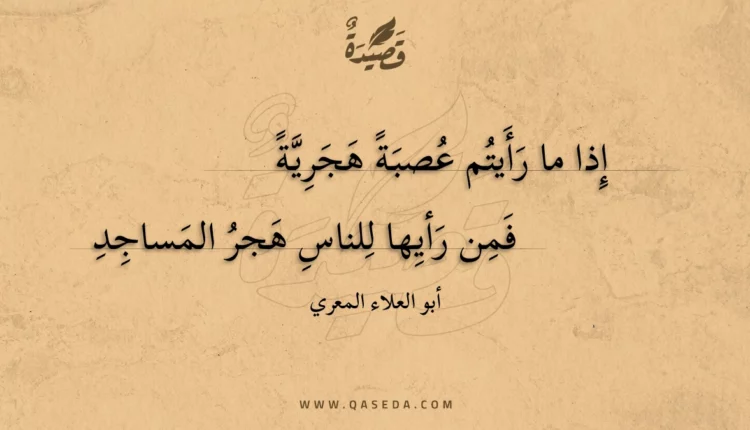 قَصِيدَةٌ
إِذا ما رَأَيتُم عُصبَةً هَجَرِيَّةً
فَمِن رَأيِها لِلناسِ هَجرُ المَساجِدِ
أبو العلاء المعري
WWW.QASEDA.COM